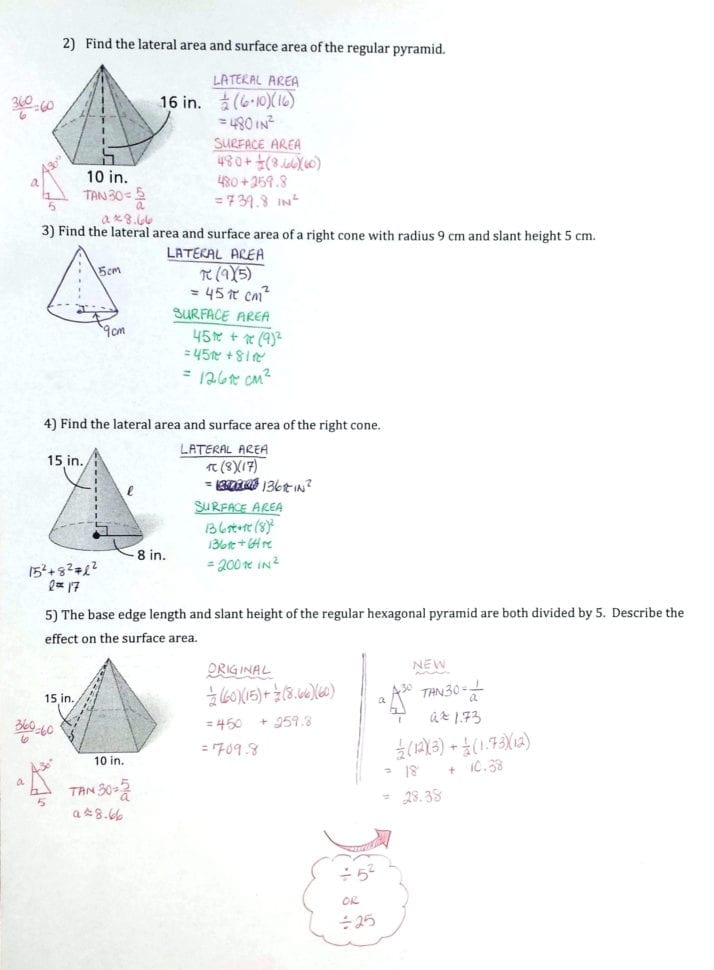 2) Find the lateral area and surface area of the regular pyramid.
360/6 = 60
16 in.
10 in.
30°
a
5
TAN 30 = 5/a
a ≈ 8.66
LATERAL AREA
1/2 (6·10)(16)
= 480 IN²
SURFACE AREA
480 + 1/2 (8.66)(60)
480 + 259.8
= 739.8 IN²
3) Find the lateral area and surface area of a right cone with radius 9 cm and slant height 5 cm.
5cm
9cm
LATERAL AREA
π (9)(5)
= 45 π cm²
SURFACE AREA
45π + π (9)²
= 45π + 81π
= 126π CM²
4) Find the lateral area and surface area of the right cone.
15 in.
ℓ
8 in.
15² + 8² = ℓ²
ℓ = 17
LATERAL AREA
π (8)(17)
= 136π IN²
SURFACE AREA
136π + π (8)²
136π + 64π
= 200π IN²
5) The base edge length and slant height of the regular hexagonal pyramid are both divided by 5. Describe the
effect on the surface area.
15 in.
360/6 = 60
10 in.
30°
a
5
TAN 30 = 5/a
a ≈ 8.66
ORIGINAL
1/2 (60)(15) + 1/2 (8.66)(60)
= 450 + 259.8
= 709.8
NEW
30
a
1
TAN 30 = 1/a
a ≈ 1.73
1/2 (12)(3) + 1/2 (1.73)(12)
= 18 + 10.38
= 28.38
÷ 5²
OR
÷ 25